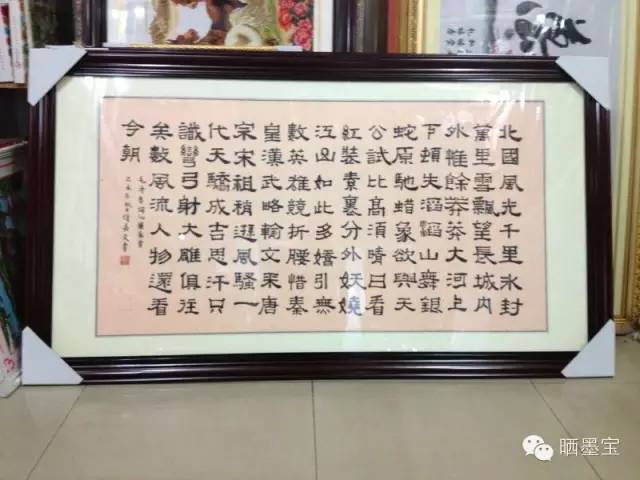 北國風光千里冰封
萬里雪飄望長城内
外惟餘莽莽大河上
下頓失滔滔山舞銀
蛇原馳蜡象欲與天
公試比高須晴日看
紅裝素裹分外妖嬈
江山如此多嬌引無
數英雄競折腰惜秦
皇漢武略輸文采唐
宗宋祖稍遜風騷一
代天驕成吉思汗只
識彎弓射大雕俱往
矣數風流人物還看
今朝
毛澤東詞沁園春雪
晒墨宝